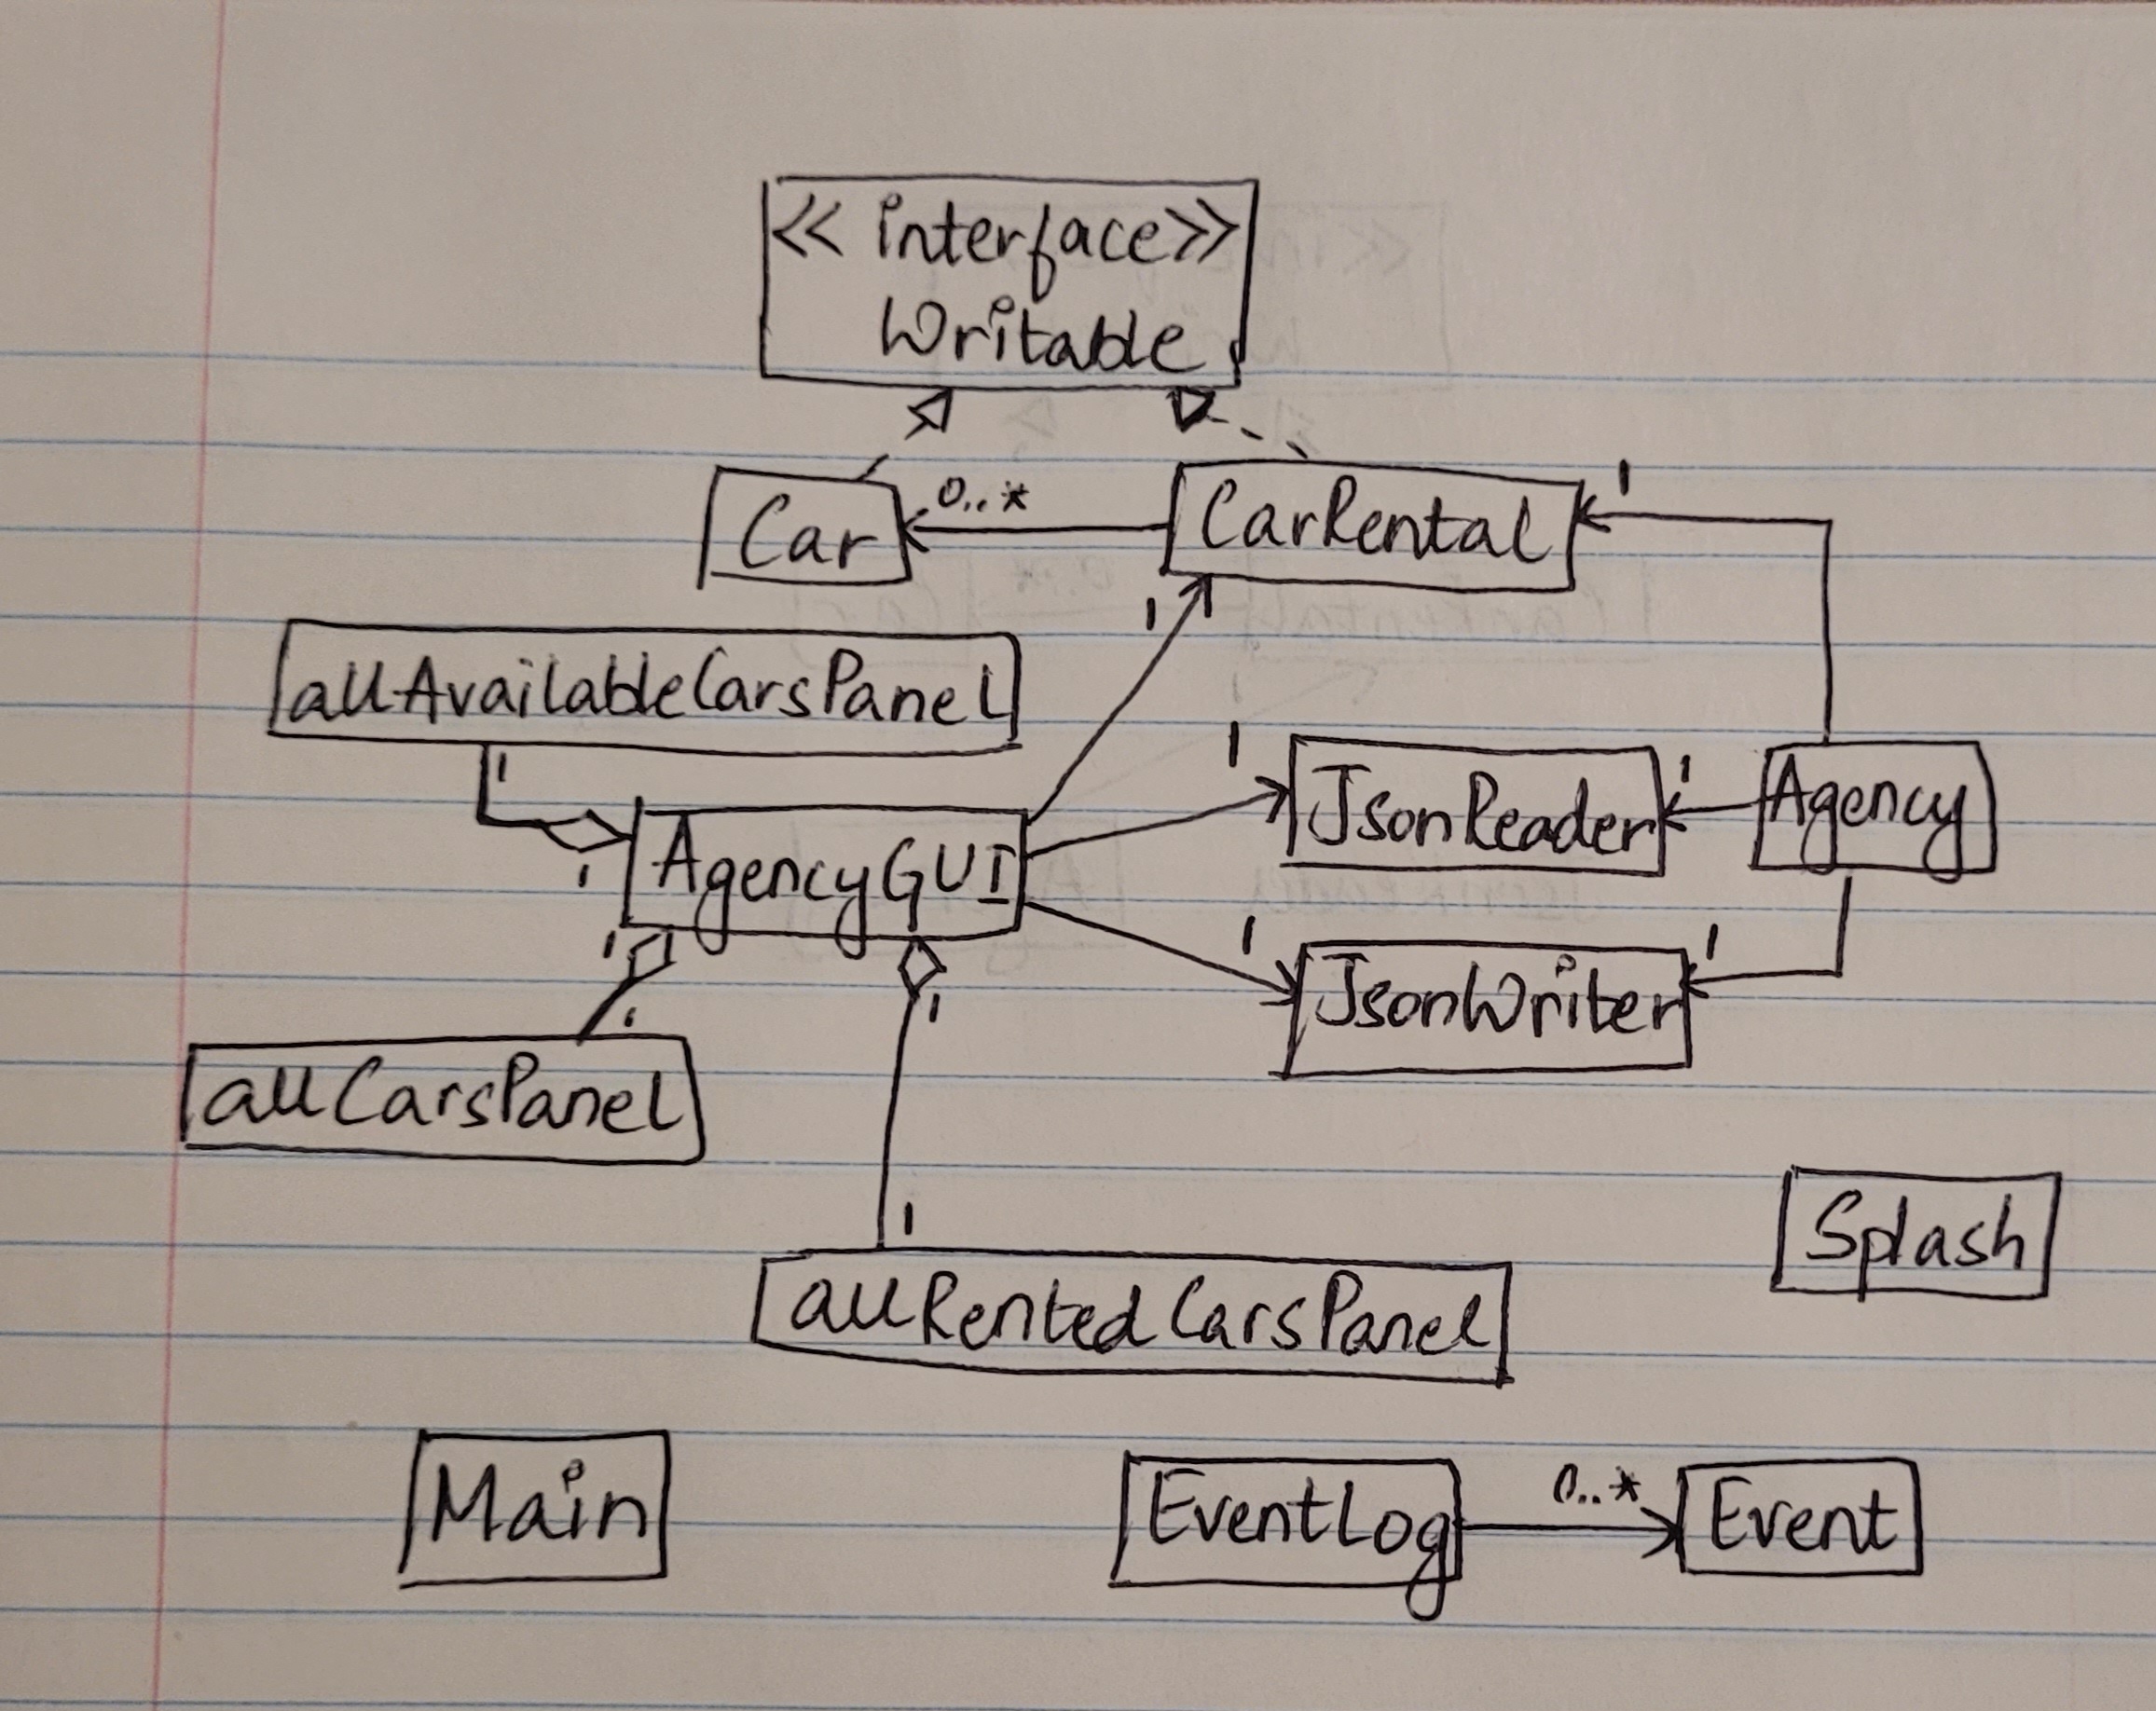 << interface>>
Writable
Car
0..*
CarRental
1
1
allAvailableCarsPanel
1
1
JsonReader
1
Agency
AgencyGUI
1
1
1
1
JsonWriter
1
1
allCarsPanel
1
allRentedCarsPanel
Splash
Main
EventLog
0..*
Event